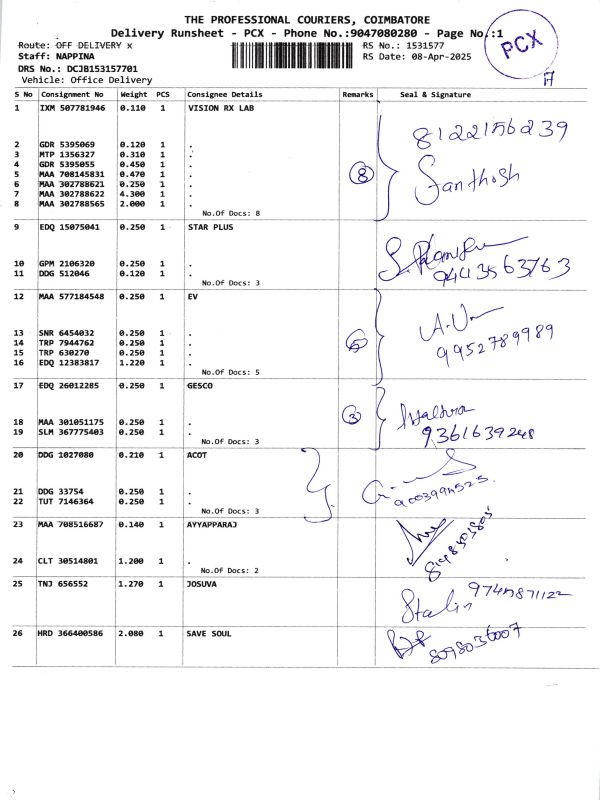 THE PROFESSIONAL COURIERS, COIMBATORE
Delivery Runsheet - PCX - Phone No.:9047080280 - Page No.:1
PCX
Route: OFF DELIVERY x
RS No.: 1531577
Staff: NAPPINA
RS Date: 08-Apr-2025
DRS No.: DCJB153157701
Vehicle: Office Delivery
S No Consignment No Weight PCS Consignee Details Remarks Seal & Signature
1 IXM 507781946 0.110 1 VISION RX LAB
8122156239
2 GDR 5395069 0.120 1 .
3 MTP 1356327 0.310 1 .
4 GDR 5395055 0.450 1 .
5 MAA 708145831 0.470 1 . 8
Santhosh
6 MAA 302788621 0.250 1 .
7 MAA 302788622 4.300 1 .
8 MAA 302788565 2.000 1 .
No.Of Docs: 8
9 EDQ 15075041 0.250 1 STAR PLUS
10 GPM 2106320 0.250 1 .
9443563763
11 DDG 512046 0.120 1 .
No.Of Docs: 3
12 MAA 577184548 0.250 1 EV
13 SNR 6454032 0.250 1 .
9952789989
14 TRP 7944762 0.250 1 . 5
15 TRP 630270 0.250 1 .
16 EDQ 12383817 1.220 1 .
No.Of Docs: 5
17 EDQ 26012285 0.250 1 GESCO
18 MAA 301051175 0.250 1 . 3
19 SLM 367775403 0.250 1 .
9361639248
No.Of Docs: 3
20 DDG 1027080 0.210 1 ACOT
21 DDG 33754 0.250 1 .
22 TUT 7146364 0.250 1 .
No.Of Docs: 3
23 MAA 708516687 0.140 1 AYYAPPARAJ
24 CLT 30514801 1.200 1 .
No.Of Docs: 2
25 TNJ 656552 1.270 1 JOSUVA
Stalin
26 HRD 366400586 2.080 1 SAVE SOUL
8098036007